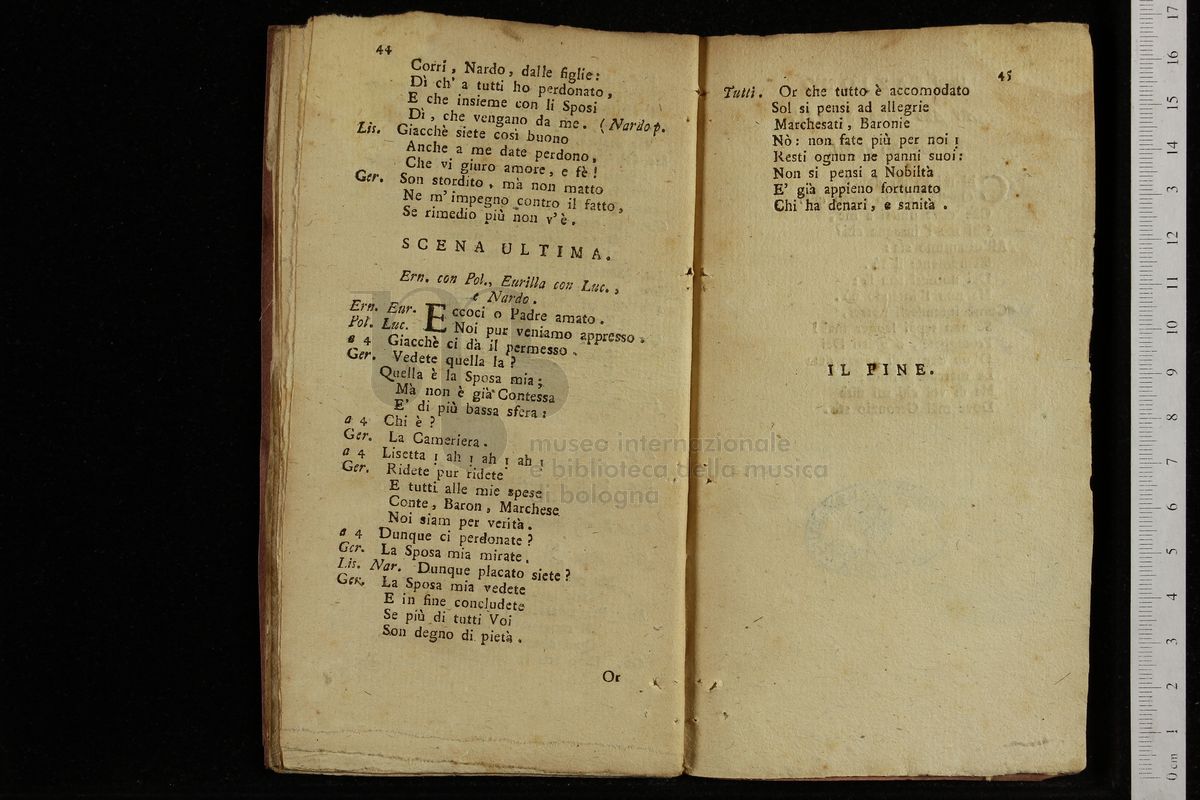 44
Corri, Nardo, dalle figlie:
Dì ch' a tutti ho perdonato,
E che insieme con li Sposi
Dì, che vengano da me. (Nardo p.
Lis. Giacchè siete così buono
Anche a me date perdono,
Che vi giuro amore, e fè!
Ger. Son stordito, mà non matto
Ne m' impegno contro il fatto,
Se rimedio più non v' è.
SCENA ULTIMA.
Ern. con Pol., Eurilla con Luc.,
e Nardo.
Ern. Eur. Eccoci o Padre amato.
Pol. Luc. Noi pur veniamo appresso.
a 4 Giacchè ci dà il permesso.
Ger. Vedete quella la?
Quella è la Sposa mia;
Mà non è già Contessa
E' di più bassa sfera:
a 4 Chi è?
Ger. La Cameriera.
a 4 Lisetta ! ah ! ah ! ah !
Ger. Ridete pur ridete
E tutti alle mie spese
Conte, Baron, Marchese
Noi siam per verità.
a 4 Dunque ci perdonate?
Ger. La Sposa mia mirate.
Lis. Nar. Dunque placato siete?
Ger. La Sposa mia vedete
E in fine concludete
Se più di tutti Voi
Son degno di pietà.
Or
45
Tutti. Or che tutto è accomodato
Sol si pensi ad allegrie
Marchesati, Baronie
Nò: non fate più per noi !
Resti ognun ne panni suoi:
Non si pensi a Nobiltà
E' già appieno fortunato
Chi ha denari, e sanità.
IL FINE.
museo internazionale
e biblioteca della musica
di bologna
0 cm 1 2 3 4 5 6 7 8 9 10 11 12 13 14 15 16 17